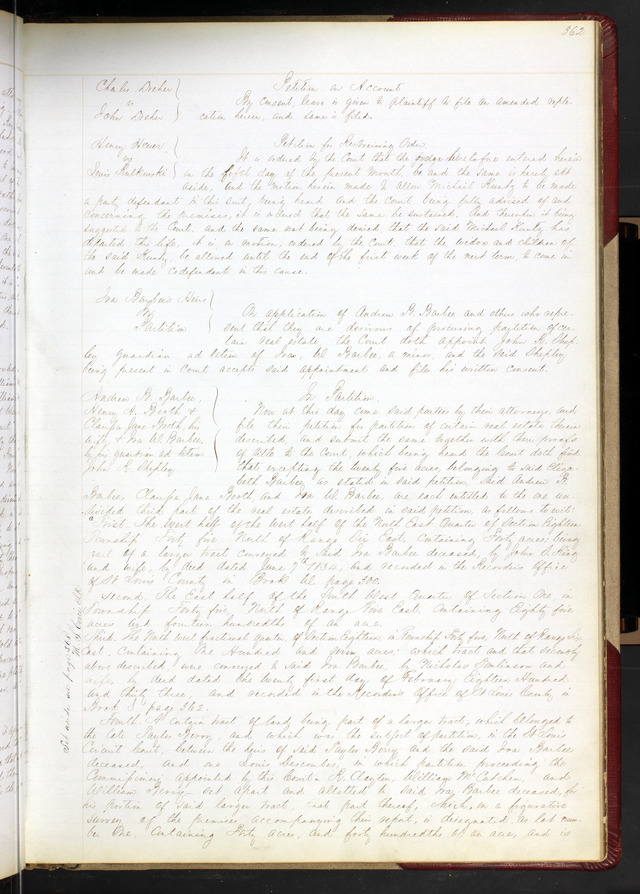 362
Charles Dreher
vs
John Dreher
Petition on Account
By Consent, leave is given to plaintiff to file an amended
cation herein, and same is filed.
Henry
vs
Louis
Petition for Restraining Order
It is ordered by the Court that the order heretofore entered herein
on the fifth day of the present Month, be and the same is hereby set
aside, and the motion herein made to allow Michael Kuntz to be made
a party defendant in this suit, being heard and the Court being fully advised of and
concerning the premises, it is ordered that the same be sustained. And thereupon it being
suggested to the Court, and the same not being denied that the said Michael Kuntz, has
departed this life, it is, on motion, ordered by the Court, that the widow and children of
the said Kuntz, be allowed until the end of the first week of the next term, to come in
and be made codefendant in this cause.
Ira Barbee's Heirs
Partition
On application of Andrew B. Barbee and others who repre-
sent that they are desirous of procuring partition of cer-
tain real estate, the Court doth appoint John R. Shep-
ley guardian ad litem of Ira W. Barbee, a minor, and the said Shepley
being present in Court accepts said appointment and files his written consent.
Andrew B. Barbee,
Henry A. Booth &
Jane Booth, his
wife, & Ira W. Barbee
by his guardian ad litem
John R. Shepley
In Partition.
Now at this day come said parties by their attorneys, and
file their petition for partition of certain real estate therein
described, and submit the same together with their proofs
of title to the Court, which being heard the Court doth find
that excepting the twenty five acres, belonging to said Eliza-
beth Barbee, as stated in said petition, said Andrew B.
Barbee, Jane Booth and Ira W. Barbee, are each entitled to the one un-
divided third part of the real estate described in said petition, as follows to wit:
First. The West half of the West half of the North East Quarter of Section Eighteen
Township Forty five North of Range Six East, Containing Forty acres being
part of a larger tract conveyed to said Ira Barbee deceased, by John
and wife, by deed dated June 7th 1834, and recorded in the Recorder's Office
of St Louis County in Book W. page 300.
Second. The East half of the South West Quarter of Section One, in
Township Forty five, North of Range Five East, Containing Eighty five
acres and fourteen hundredths of an acre.
Third. The North West fractional quarter of Section Eighteen in Township Forty five, North of Range Six
East. Containing One Hundred and seven acres; which tract and that secondly
above described were conveyed to said Ira Barbee, by Nicholas Tomlinson and
wife, by deed dated the twenty first day of February Eighteen Hundred
and thirty three, and recorded in the Recorder's Office of St Louis County in
Book S. page 362.
Fourth. A certain tract of land being part of a larger tract, which belonged to
the late Taylor Berry, and which was the subject of partition, in the St Louis
Circuit Court, between the heirs of said Taylor Berry and the said Ira Barbee
deceased, and one Louis Descombes, in which partition proceeding the
Commissioners appointed by this Court R. Clayton, William McCutchen, and
William Berry set apart and allotted to said Ira Barbee deceased, for
his portion of said larger tract, that part thereof, which, on a figurative
Survey of the premises accompanying their report, is designated as lot num-
ber One, containing Forty acres, and forty hundredths of an acre, and is
Set aside see page 365